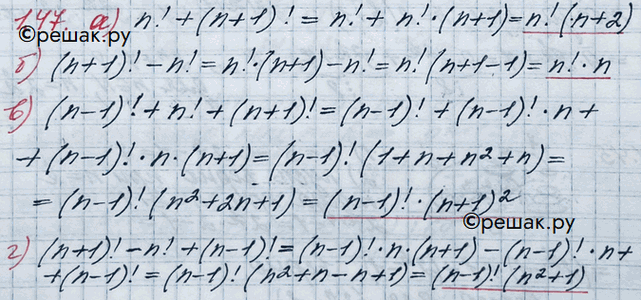 147 а) n! + (n+1)! = n! + n! · (n+1) = n! (n+2)
©решак.ру
б) (n+1)! - n! = n! · (n+1) - n! = n! (n+1-1) = n! · n
в) (n-1)! + n! + (n+1)! = (n-1)! + (n-1)! · n +
+ (n-1)! · n · (n+1) = (n-1)! (1 + n + n² + n) =
= (n-1)! (n² + 2n + 1) = (n-1)! · (n+1)²
©решак.ру
г) (n+1)! - n! + (n-1)! = (n-1)! · n · (n+1) - (n-1)! · n +
+ (n-1)! = (n-1)! (n² + n - n + 1) = (n-1)! (n² + 1)